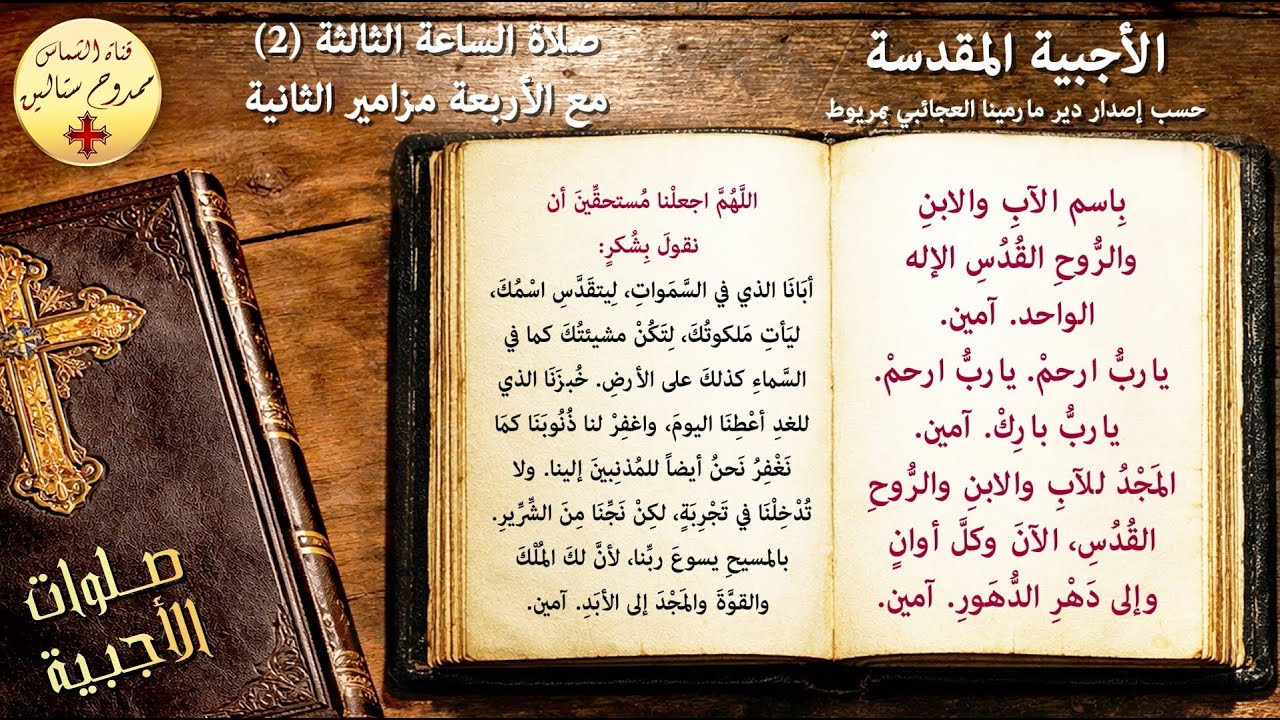 الأجبية المقدسة
حسب إصدار دير مارمينا العجائبي بمريوط
صلاة الساعة الثالثة (2)
مع الأربعة مزامير الثانية
قناة الشماس
ممدوح ستالين
بِاسم الآبِ والابنِ
والرُّوحِ القُدُسِ الإله
الواحد. آمين.
ياربُّ ارحمْ. ياربُّ ارحمْ.
ياربُّ بارِكْ. آمين.
المَجْدُ للآبِ والابنِ والرُّوحِ
القُدُسِ، الآنَ وكلَّ أوانٍ
وإلى دَهْرِ الدُّهَورِ. آمين.
اللَّهُمَّ اجعلْنا مُستحقِّينَ أن
نقولَ بِشُكرٍ:
أبَانَا الذي في السَّمَواتِ، لِيتقَدَّسِ اسْمُكَ،
ليَأتِ مَلكوتُكَ، لِتَكُنْ مشيئتُكَ كما في
السَّماءِ كذلكَ على الأرضِ. خُبزَنَا الذي
للغدِ أعْطِنَا اليومَ، واغفِرْ لنا ذُنُوبَنَا كمَا
نَغْفِرُ نَحنُ أيضاً للمُذنِبِينَ إلينا. ولا
تُدْخِلْنَا في تَجْرِبَةٍ، لكِنْ نَجِّنَا مِنَ الشِّرِّيرِ.
بالمسيحِ يسوعَ ربِّنا، لأنَّ لكَ المُلْكَ
والقوَّةَ والمَجْدَ إلى الأبَدِ. آمين.
صلوات
الأجبية